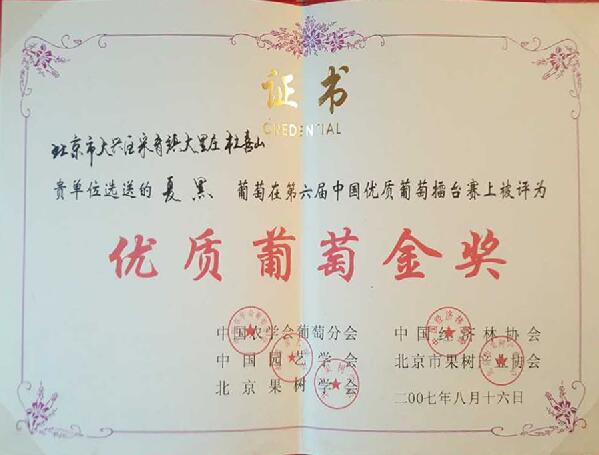 证书
CREDENTIAL
北京市大兴区采育镇大里庄杜喜山
贵单位选送的夏黑葡萄在第六届中国优质葡萄擂台赛上被评为
优质葡萄金奖
中国农学会葡萄分会 中国经济林协会
中国园艺学会 北京市果树产业协会
北京果树学会
二00七年八月十六日